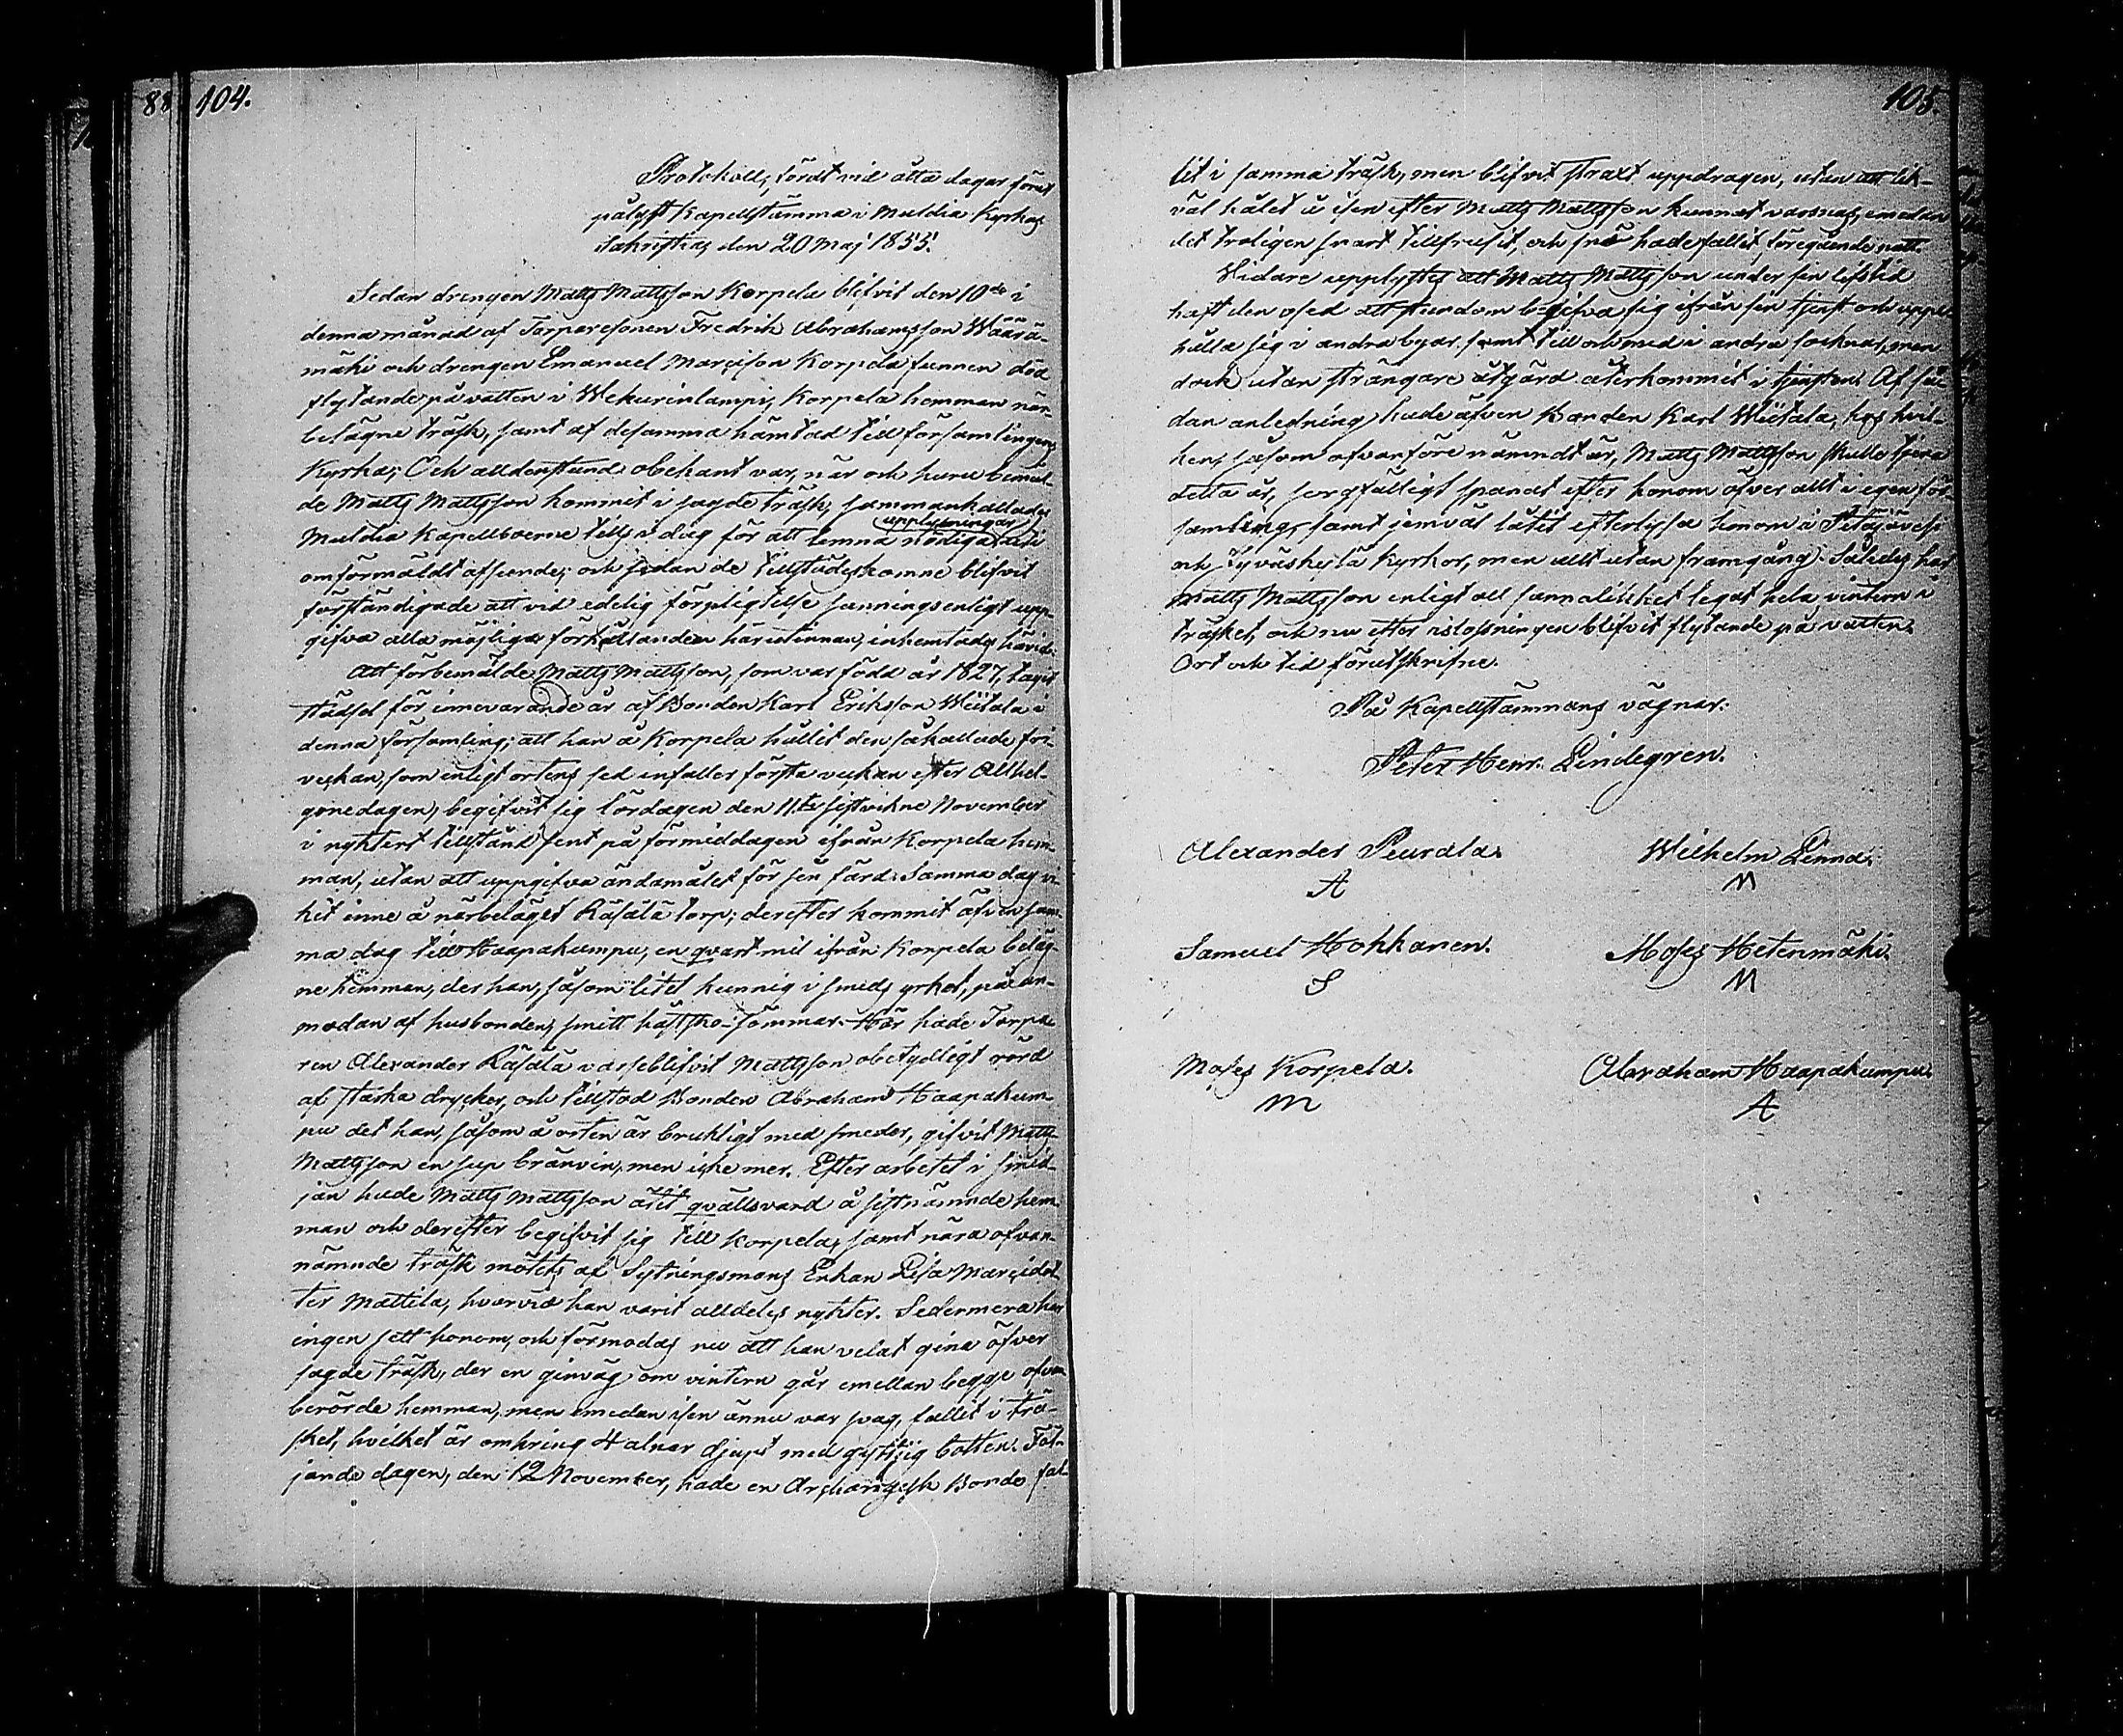 88 104.
Protokoll, fördt vid åtta dagar förut
pålyst Kapellstämma i Multia Kyrkas
Sakristia, den 20 Maj 1855.
Sedan drengen Matts Mattsson Korpela blifvit den 10de i
denna månad af Torparesonen Fredrik Abrahamsson Wäärä-
mäki och drengen Emanuel Marcisson Korpela funnen död
flytande på vatten i Wekurinlampi, Korpela hemman när-
belägne träsk, samt af desamma hämtad till församlingens
Kyrka; Och alldenstund obekant var, när och huru bemäl-
de Matts Mattsson kommit i sagde träsk, sammankallades
Multia Kapellboerne tills i dag för att lemna nödiga
upplysningar
omförmäldt afseende; och sedan de tillstädeskomne blifvit
förständigade att vid edelig förpligtelse sanningsenligt upp-
gifva alla möjliga förhållanden härutinnan, inhemtades härvid:
Att förbemälde Matts Mattsson, som var född år 1827, tagit
städsel för innevarande år af Bonden Karl Eriksson Wiitala i
denna församling; att han å Korpela hållit den såkallade fri-
veckan, som enligt ortens sed infaller första veckan efter Allhel-
gonedagen, begifvit sig Lördagen den 11te sistvikne November
i nyktert tillstånd sent på förmiddagen ifrån Korpela hem-
man, utan att uppgifva ändamålet för sin färd. Samma dag vi-
kit inne å närbeläget Räsälä torp; derefter kommit äfven sam-
ma dag till Haapakumpu, en qvart mil ifrån Korpela beläg-
ne hemman, der han, såsom litet kunnig i smeds yrket, på an-
modan af husbonden, smitt hästsko-sömmar. Här hade Torpa-
ren Alexander Räsälä varseblifvit Mattsson obetydligt rörd
af starka drycker, och tillstod Bonden Abraham Haapakum-
pu det han, såsom å orten är brukligt med smeder, gifvit Matts
Mattsson en sup bränvin, men icke mer. Efter arbetet i smed-
jan hade Matts Mattsson ätit qvällsvard å sistnämnde hem-
man och derefter begifvit sig till Korpela, samt nära ofvan-
nämnde träsk mötets af Sytningsmans Enkan Lisa Marcidot-
ter Mattila, hvarvid han varit alldeles nykter. Sedermera har
ingen sett honom, och förmodas nu att han velat gina öfver
sagde träsk, der en ginväg om vintern går emellan begge ofvan
berörde hemman, men emedan isen ännu var svag, fallit i trä-
sket, hvilket är omkring 4 alnar djupt med gyttjig botten. Föl-
jande dagen, den 12 November, hade en Archangelsk Bonde fal-
105.
lit i samma träsk, men blifvit straxt uppdragen, utan att lik-
väl hålet å isen efter Matts Mattsson kunnat varsnas, emedan
det troligen snart tillfrusit, och snö hade fallit föregående natt.
Vidare upplystes att Matts Mattsson under sin lifstid
haft den osed att stundom begifva sig ifrån sin tjenst och uppe-
hålla sig i andra byar samt till och med i andra socknar, men
dock utan strängare åtgärd återkommit i tjensten. Af så-
dan anledning hade äfven Bonden Karl Wiitala, hos hvil-
ken, såsom ofvanföre nämndt är, Matts Mattsson skulle tjena
detta år, sorgfälligt spanat efter honom öfver allt i egen för-
samling, samt jemväl låtit efterlysa honom i Petäjävesi
och Jyväskylä Kyrkor, men allt utan framgång. Således har
Matts Mattsson enligt all sannolikhet legat hela vintern i
träsket, och nu efter islossningen blifvit flytande på vatten.
Ort och tid förutskrifne.
På Kapellstämmans vägnar:
Peter Henr. Lindegren.
Alexander Peurala. Wilhelm Linna.
A W
Samuel Hokkanen. Moses Hetenmäki.
S M
Moses Korpela. Abraham Haapakumpu.
M A